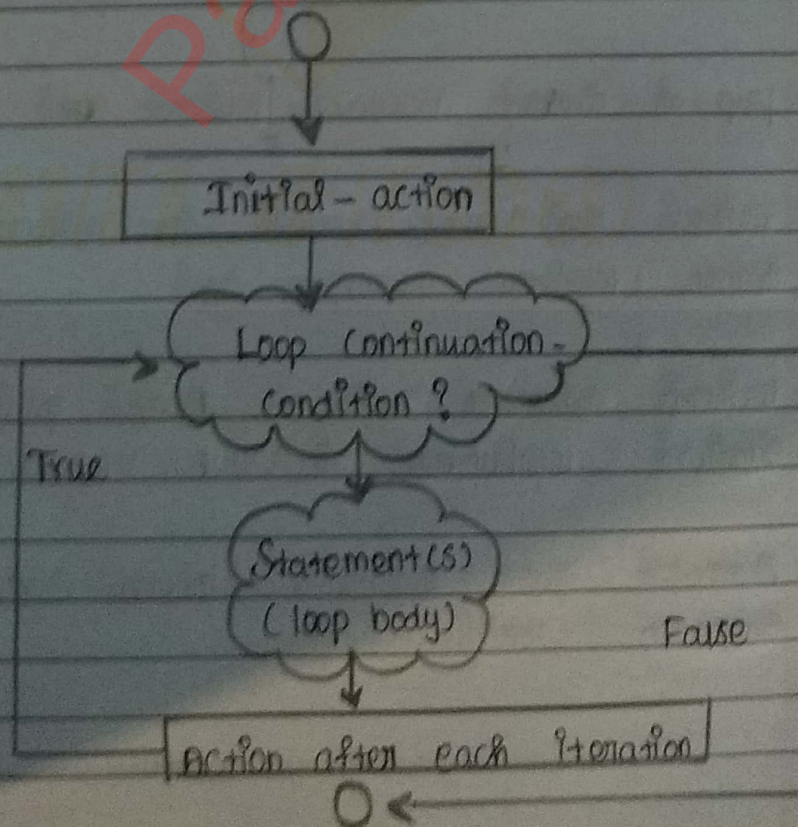 Pa
Initial - action
Loop continuation -
condition ?
True
Statement(s)
(loop body)
False
Action after each iteration